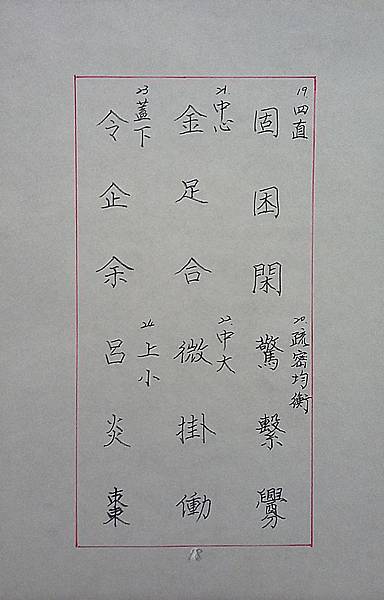 19 四直
20 疏密均衡
固困閑驚繫釁
21 中心
22 中大
金足合微掛働
23 蓋下
24 上小
令企余呂炎棗
18